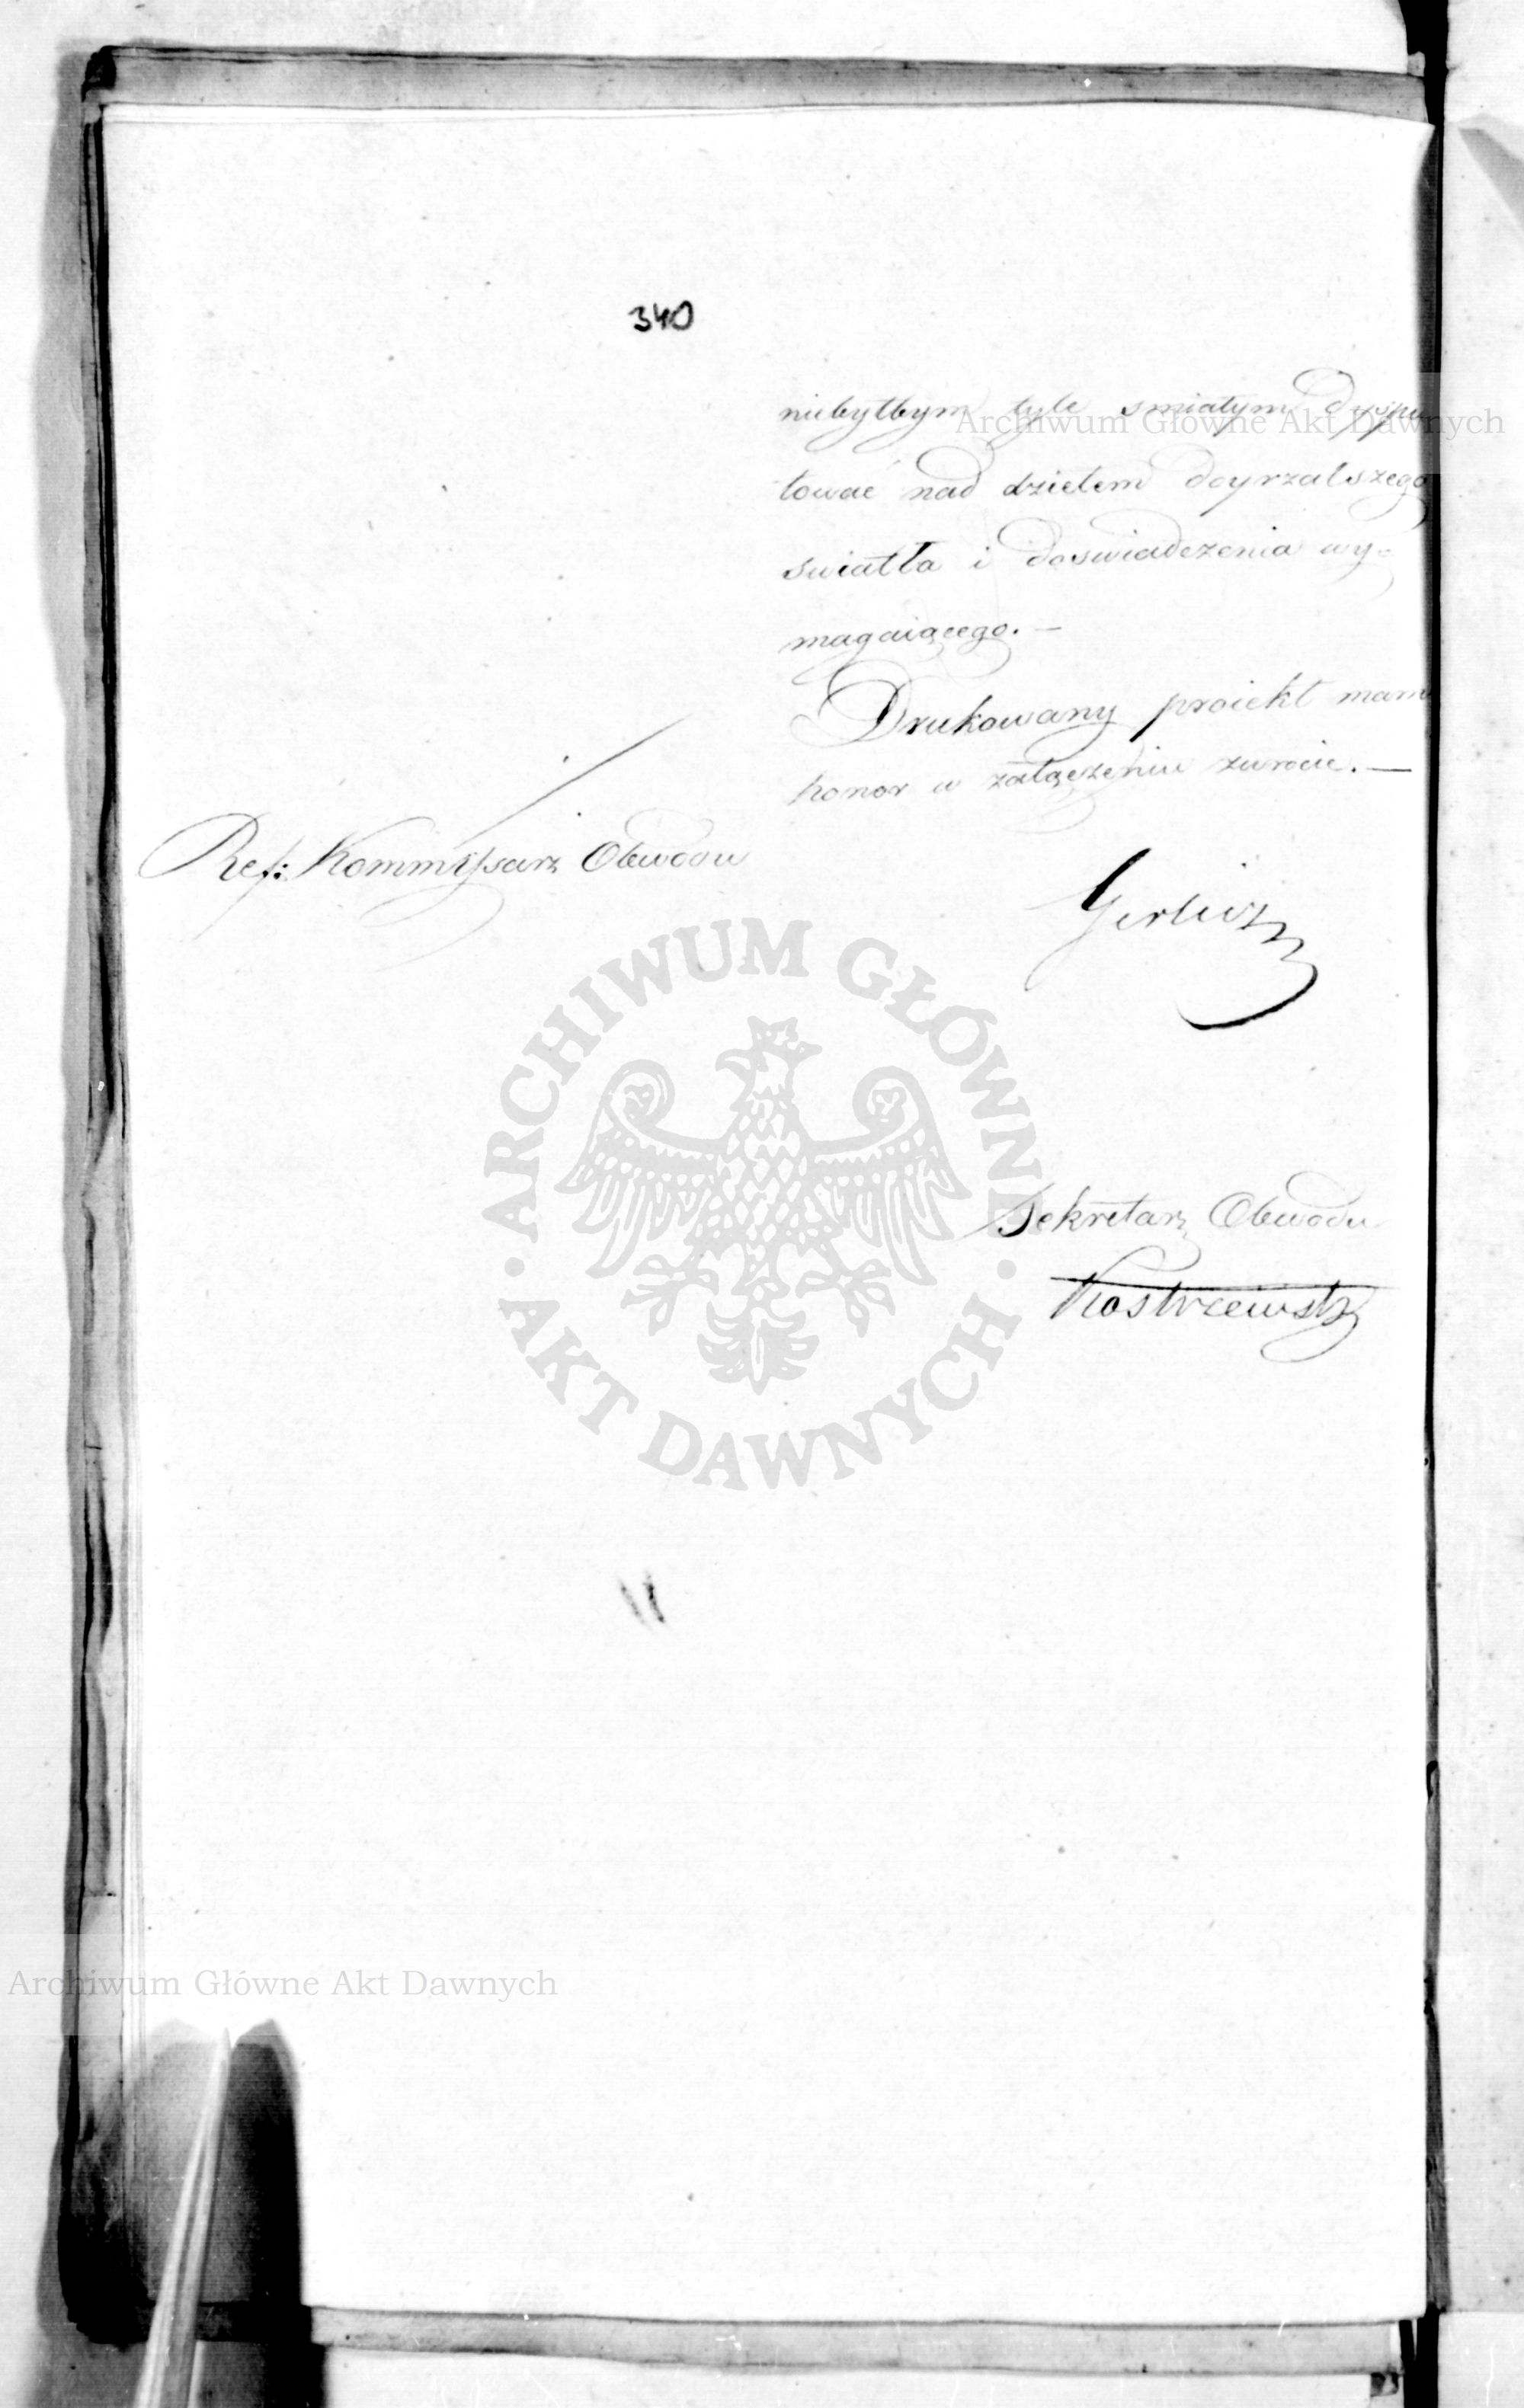 340
niebyłbym tyle smiałym dyspu
tować nad dziełem doyrzalszego
swiatła i doswiadczenia wy=
magaiącego.—
Drukowany proiekt mam
honor w załączeniu zwrócić.—
Ref: Kommissarz Obwodu
Gerlicz
Sekretarz Obwodu
Kostrzewski
Archiwum Główne Akt Dawnych
ARCHIWUM GŁÓWNE
AKT DAWNYCH
Archiwum Główne Akt Dawnych